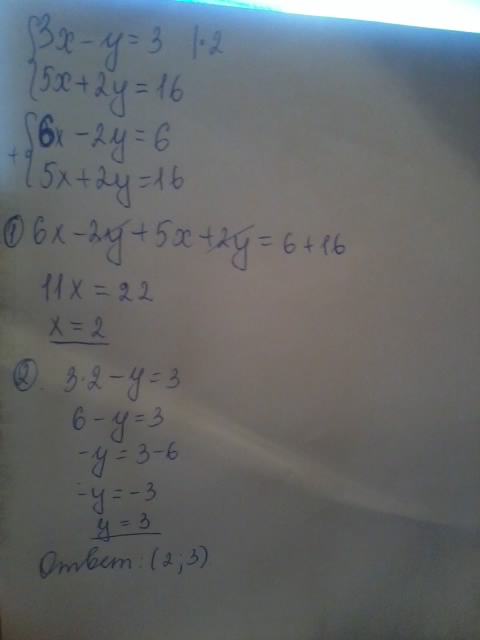 {3x - y = 3 |·2
{5x + 2y = 16
+ {6x - 2y = 6
{5x + 2y = 16
① 6x - 2y + 5x + 2y = 6 + 16
11x = 22
x = 2
②. 3·2 - y = 3
6 - y = 3
-y = 3 - 6
-y = -3
y = 3
Ответ: (2; 3)